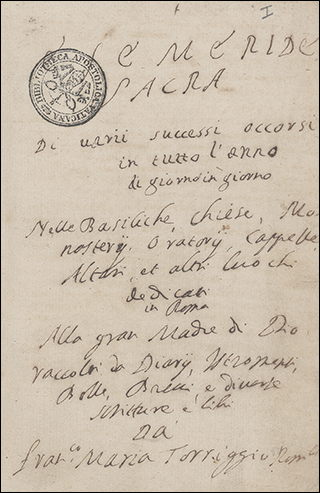 I
E MERIDE
SACRA
BIBLIOTHECA APOSTOLICA VATICANA
Di varii successi occorsi
in tutto l'anno
di giorno in giorno
Nelle Basiliche, Chiese, Mo
nasterij, Oratorij, Cappelle,
Altari, et altri luochi
dedicati
in Roma
Alla gran Madre di Dio
raccolti da Diarij, Istromenti,
Bolle, Brevi e diverse
scritture e libri
DA
Fran.co Maria Torriggio Rom